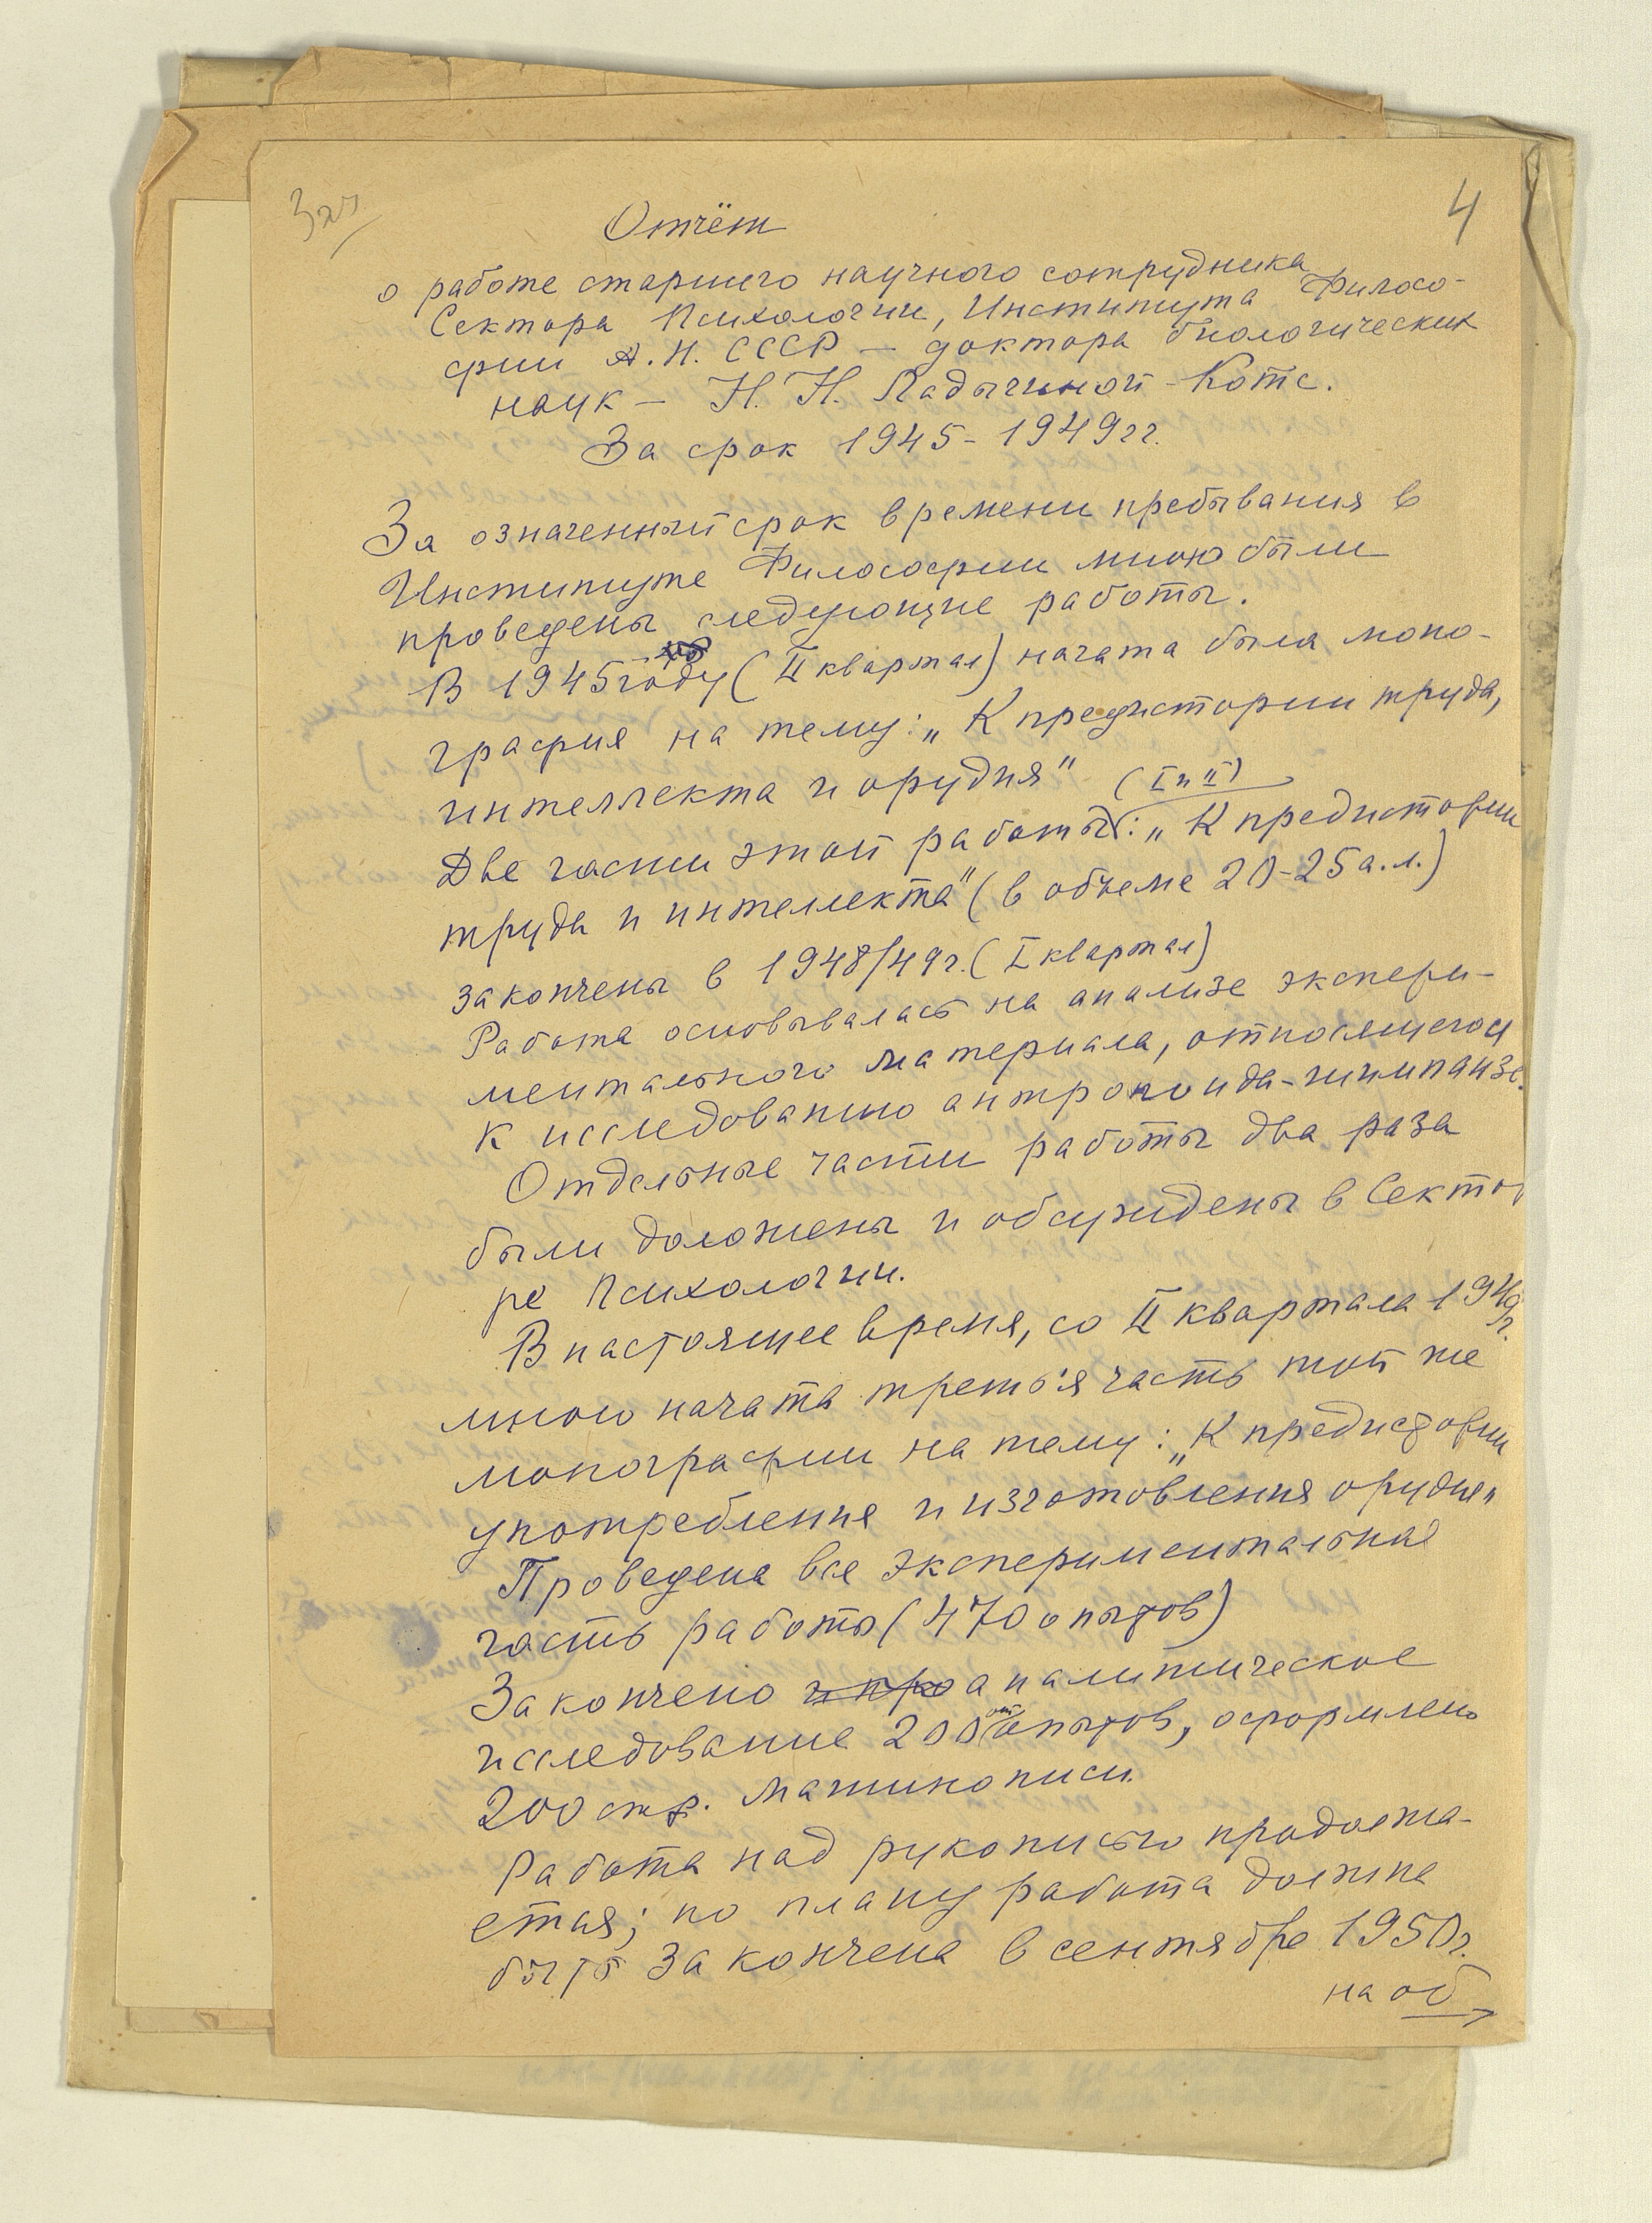 4
Отчёт
о работе старшего научного сотрудника
Сектора Психологии, Института Филосо-
фии А.Н. СССР — доктора биологических
наук — Н. Н. Ладыгиной-Котс.
За срок 1945-1949 гг.
За означенный срок времени пребывания в
Институте Философии мною были
проведены следующие работы.
В 1945 году (II квартал) начата была моно-
графия на тему: „К предистории труда,
интеллекта и орудия"
(I и II)
Две части этой работы: „К предистории
труда и интеллекта" (в объеме 20-25 а.л.)
закончены в 1948/49 г. (I квартал)
Работа основывалась на анализе экспери-
ментального материала, относящегося
к исследованию антропоида-шимпанзе.
Отдельные части работы два раза
были доложены и обсуждены в Секто-
ре Психологии.
В настоящее время, со II квартала 1949 г.
мною начата третья часть той же
монографии на тему: „К предистории
употребления и изготовления орудия"
Проведена вся экспериментальная
часть работы (470 опытов)
Закончено и про аналитическое
исследование 200 опытов, оформлено
200 стр. машинописи.
Работа над рукописью продолжа-
ется; по плану работа должна
быть закончена в сентябре 1950 г.
на об